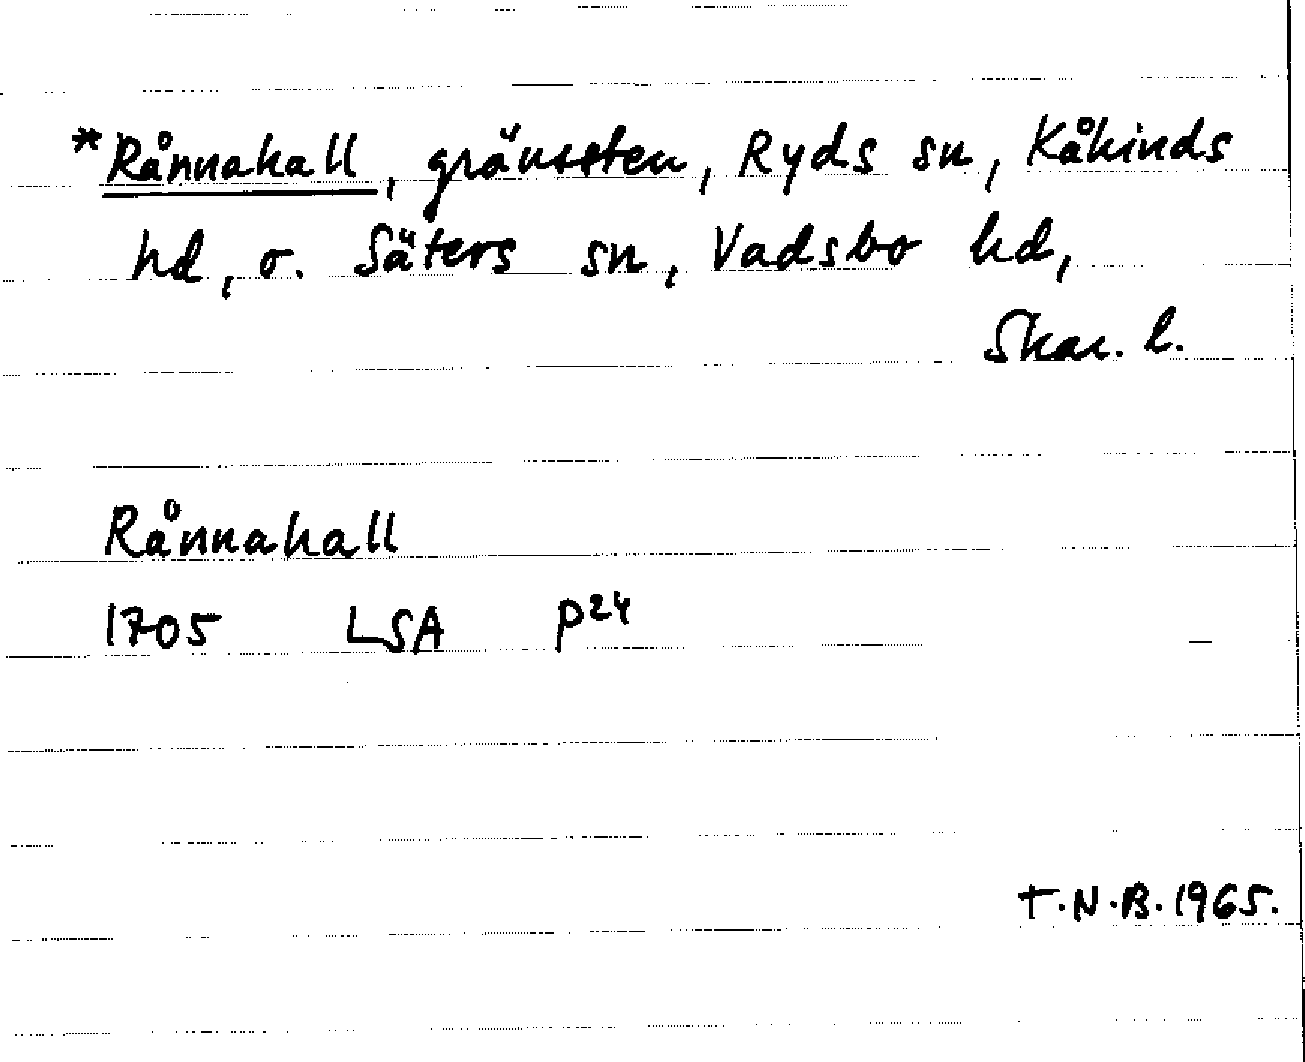 *Rånnahall, gränssten, Ryds sn, Kåkinds
hd, o. Säters sn, Vadsbo hd,
Skar. l.
Rånnahall
1705 LSA P24
T.N.B. 1965.